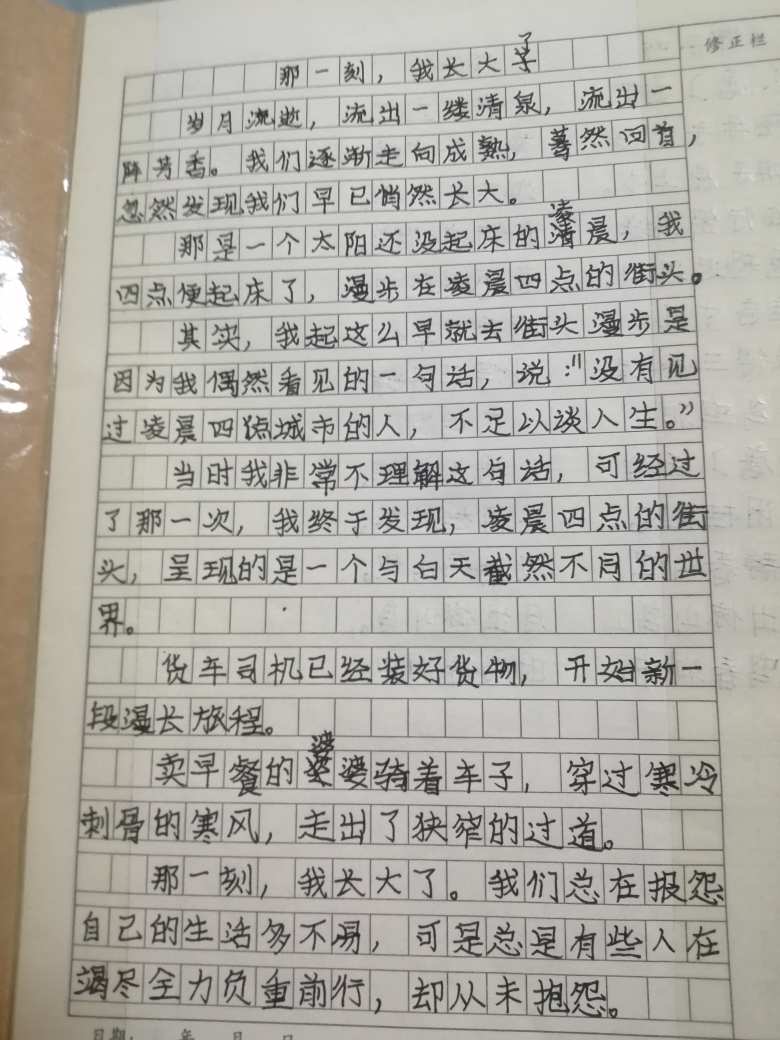 修正栏
那一刻，我长大了
岁月流逝，流出一缕清泉，流出一
阵芳香。我们逐渐走向成熟，蓦然回首，
忽然发现我们早已悄然长大。
那是一个太阳还没起床的凌晨，我
四点便起床了，漫步在凌晨四点的街头。
其实，我起这么早就去街头漫步是
因为我偶然看见的一句话，说："没有见
过凌晨四点城市的人，不足以谈人生。"
当时我非常不理解这句话，可经过
了那一次，我终于发现，凌晨四点的街
头，呈现的是一个与白天截然不同的世
界。
货车司机已经装好货物，开始新一
段漫长旅程。
卖早餐的婆婆骑着车子，穿过寒冷
刺骨的寒风，走出了狭窄的过道。
那一刻，我长大了。我们总在报怨
自己的生活多不易，可是总是有些人在
竭尽全力负重前行，却从未抱怨。
日期： 年 月 日